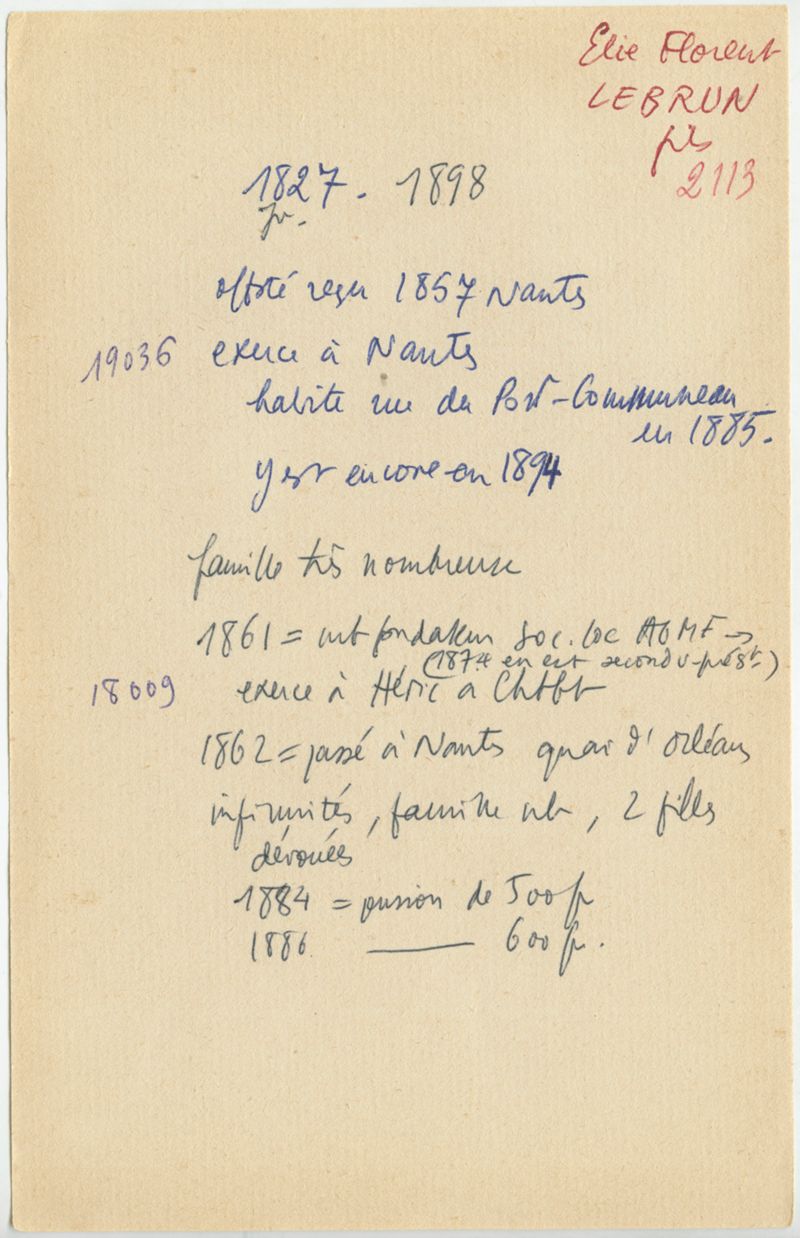 Elie Florent
LEBRUN
2113
1827 - 1898
offté reçu 1857 Nantes
19036 exerce à Nantes
habite rue du Port-Communeau
en 1885.
y est encore en 1894
famille très nombreuse
1861 = mb fondateur Soc. loc AGMF →
(1874 en est second v-prést)
18009 exerce à Héric a Chtbt
1862 = passé à Nantes quai d'Orléans
infirmités, famille nb, 2 filles
dévouées
1884 = pension de 500 fr
1886 —— 600 fr.